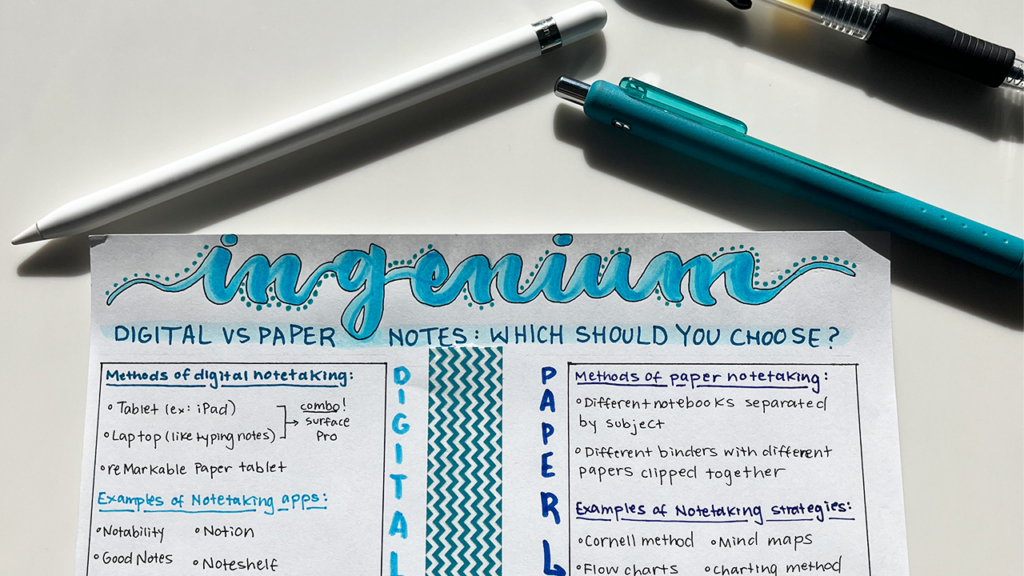 ingenium
DIGITAL VS PAPER NOTES: WHICH SHOULD YOU CHOOSE?
Methods of digital notetaking:
• Tablet (ex: iPad)
• Laptop (like typing notes)
combo!
→ surface
Pro
• reMarkable Paper tablet
Examples of Notetaking apps:
• Notability • Notion
• Good Notes • Noteshelf
DIGITAL
PAPER
Methods of paper notetaking:
• Different notebooks separated
by subject
• Different binders with different
papers clipped together
Examples of Notetaking strategies:
• Cornell method • Mind maps
• Flow charts • charting method